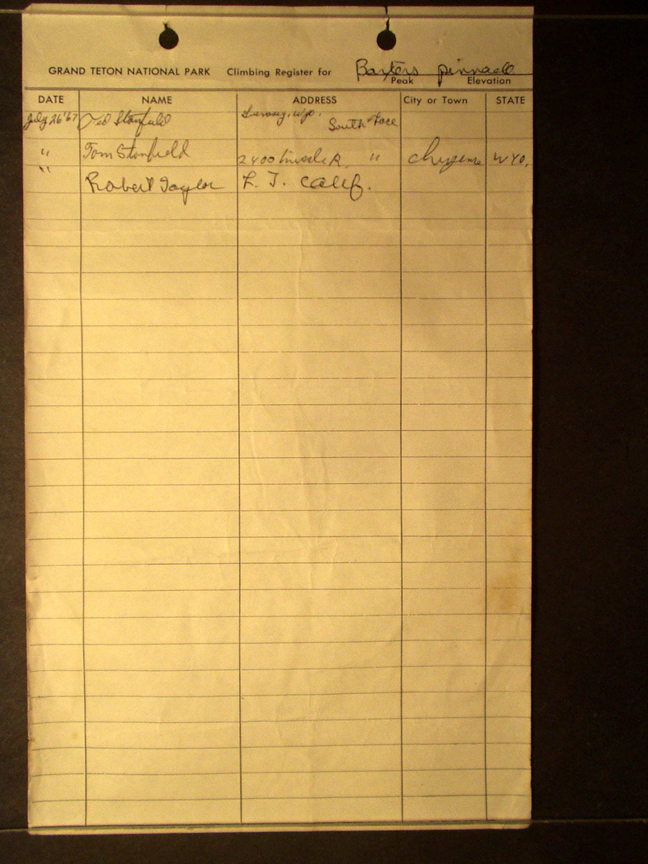 GRAND TETON NATIONAL PARK Climbing Register for Baxters pinnacle
Peak Elevation
DATE NAME ADDRESS City or Town STATE
July 26 '67 Ted Stanfield Wyo. South Face
" Tom Stanfield 2400 " WYO.
" Robert Taylor L. T. Calif.